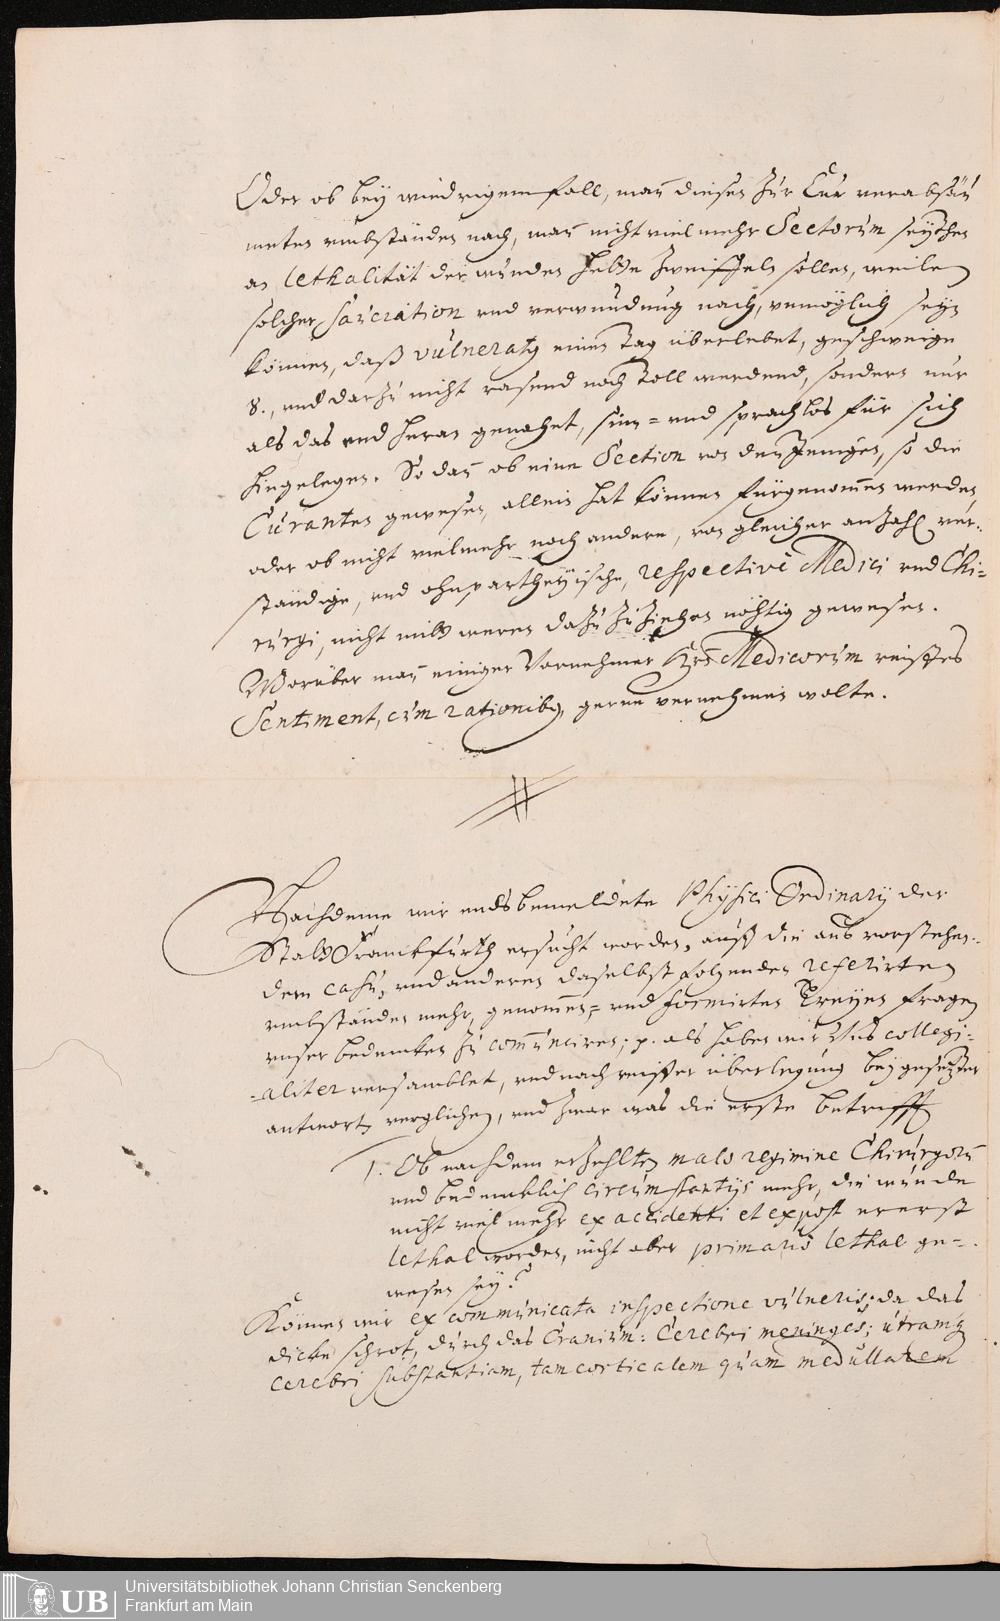 Oder ob bey wiedrigem fall, man dieser zur Cur verabsäu
meten umbständen nach, man nicht viel mehr Sectorum seythen
an lethalität der wunden hette zweiffeln sollen, weilen
solcher sauciation und verwundung nach, unmöglich seyn
können, daß vulneratg einen Tag überlebet, geschweige
8., und darzu nicht rasend noch toll werdend, sondern nur
als das end heran genahet, sinn= und sprachlos für sich
hingelegen. So dan ob eine Section von denjenigen, so die
Curanten gewesen, allein hat können fürgenommen werden,
oder ob nicht vielmehr noch andere, von gleicher anzahl ver=
ständige, und ohnpartheyische, respectivè Medici und Chi=
rurgi, nicht weren dazu zu ziehen nöhtig gewesen.
Worüber man einiger Vornehmer Medicorum reiffes
Sentiment, cum rationibg, gerne vernehmen wolte.
Nachdeme wir endsbemeldete Physici Ordinarij der
Statt Franckfurth ersucht worden, auß die aus vorstehen=
dem casu, und anderen daselbst folgenden referirten
umbständen mehr, genommen= und formirten Dreyen fragen
unser bedencken zu com̅uniciren; p. als haben wir Uns collegi=
=aliter versamblet, und nach reiffer überlegung beygesetzter
antwort verglichen, und zwar was die erste betrifft
1. Ob nachdem erzehlten malo regimine Chirurgorum
und bedencklich circumstantijs mehr, die wunde
nicht viel mehr ex accidenti et expost ererst
lethal worden, nicht aber primariò lethal ge=
wesen sey?
Können wir ex communicata inspectione vulneris; da das
dicke schrot, durch das Cranium: Cerebri meninges; utramq
cerebri substantiam, tam corticalem quàm medullarem
Universitätsbibliothek Johann Christian Senckenberg
Frankfurt am Main
UB